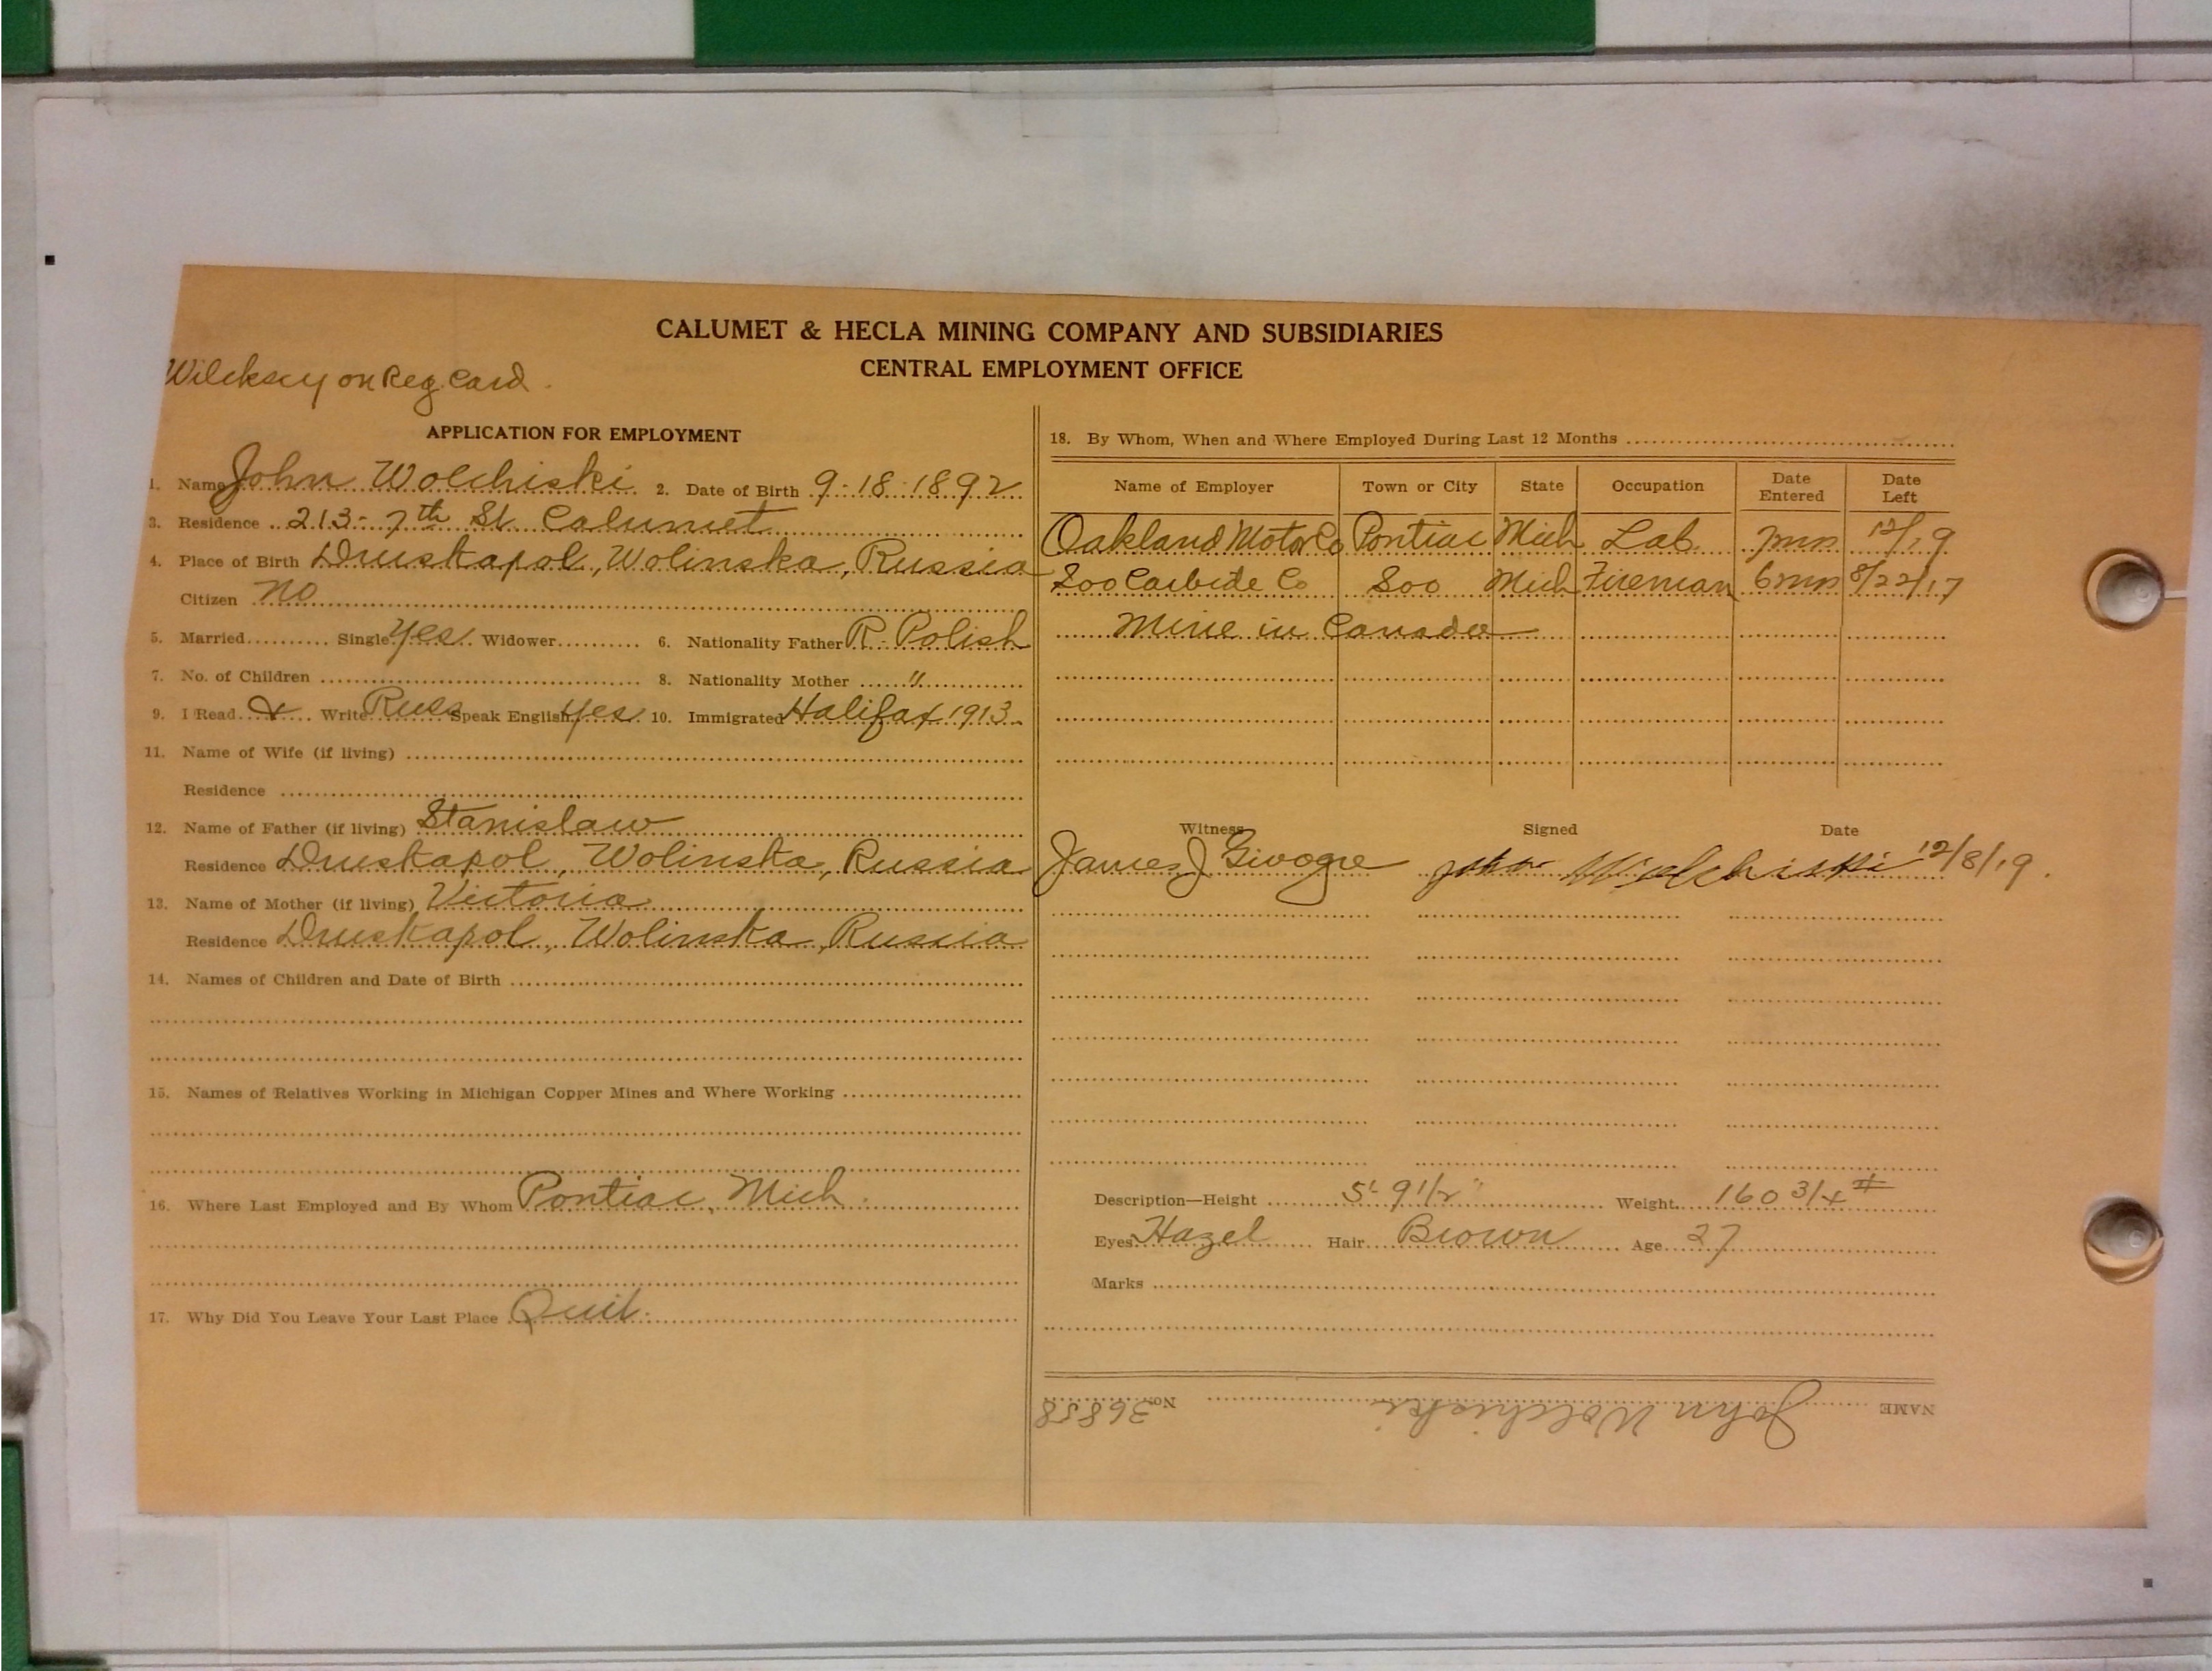 CALUMET & HECLA MINING COMPANY AND SUBSIDIARIES
CENTRAL EMPLOYMENT OFFICE
on Reg Card.
APPLICATION FOR EMPLOYMENT
1. Name John Wolchiski 2. Date of Birth 9-18-1892
3. Residence 213-7th St Calumet
4. Place of Birth Druskapol, Wolinska, Russia
Citizen No
5. Married Single Yes. Widower 6. Nationality Father R. Polish
7. No. of Children 8. Nationality Mother "
9. I Read & Write Russ Speak English Yes 10. Immigrated Halifax 1913
11. Name of Wife (if living)
Residence
12. Name of Father (if living) Stanislaw
Residence Druskapol, Wolinska, Russia
13. Name of Mother (if living) Victoria
Residence Druskapol, Wolinska, Russia
14. Names of Children and Date of Birth
15. Names of Relatives Working in Michigan Copper Mines and Where Working
16. Where Last Employed and By Whom Pontiac, Mich.
17. Why Did You Leave Your Last Place Quit.
18. By Whom, When and Where Employed During Last 12 Months
Name of Employer Town or City State Occupation Date Entered Date Left
Oakland Motor Co Pontiac Mich Lab. 12/19
Soo Carbide Co Soo Mich Fireman 6 mn 8/22/17
Mine in Canada
Witness Signed Date
James J John Wolchiski 12/8/19.
Description—Height 5' 9 1/2" Weight 160 3/4 #
Eyes Hazel Hair Brown Age 27
Marks
NAME John Wolchiski No. 36858